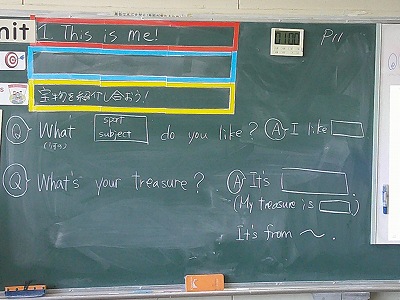 nit
1. This is me!
P11
宝物を紹介し合おう!
Q What sport subject do you like? A I like
Q What's your treasure? A It's .
(My treasure is )
It's from ～.